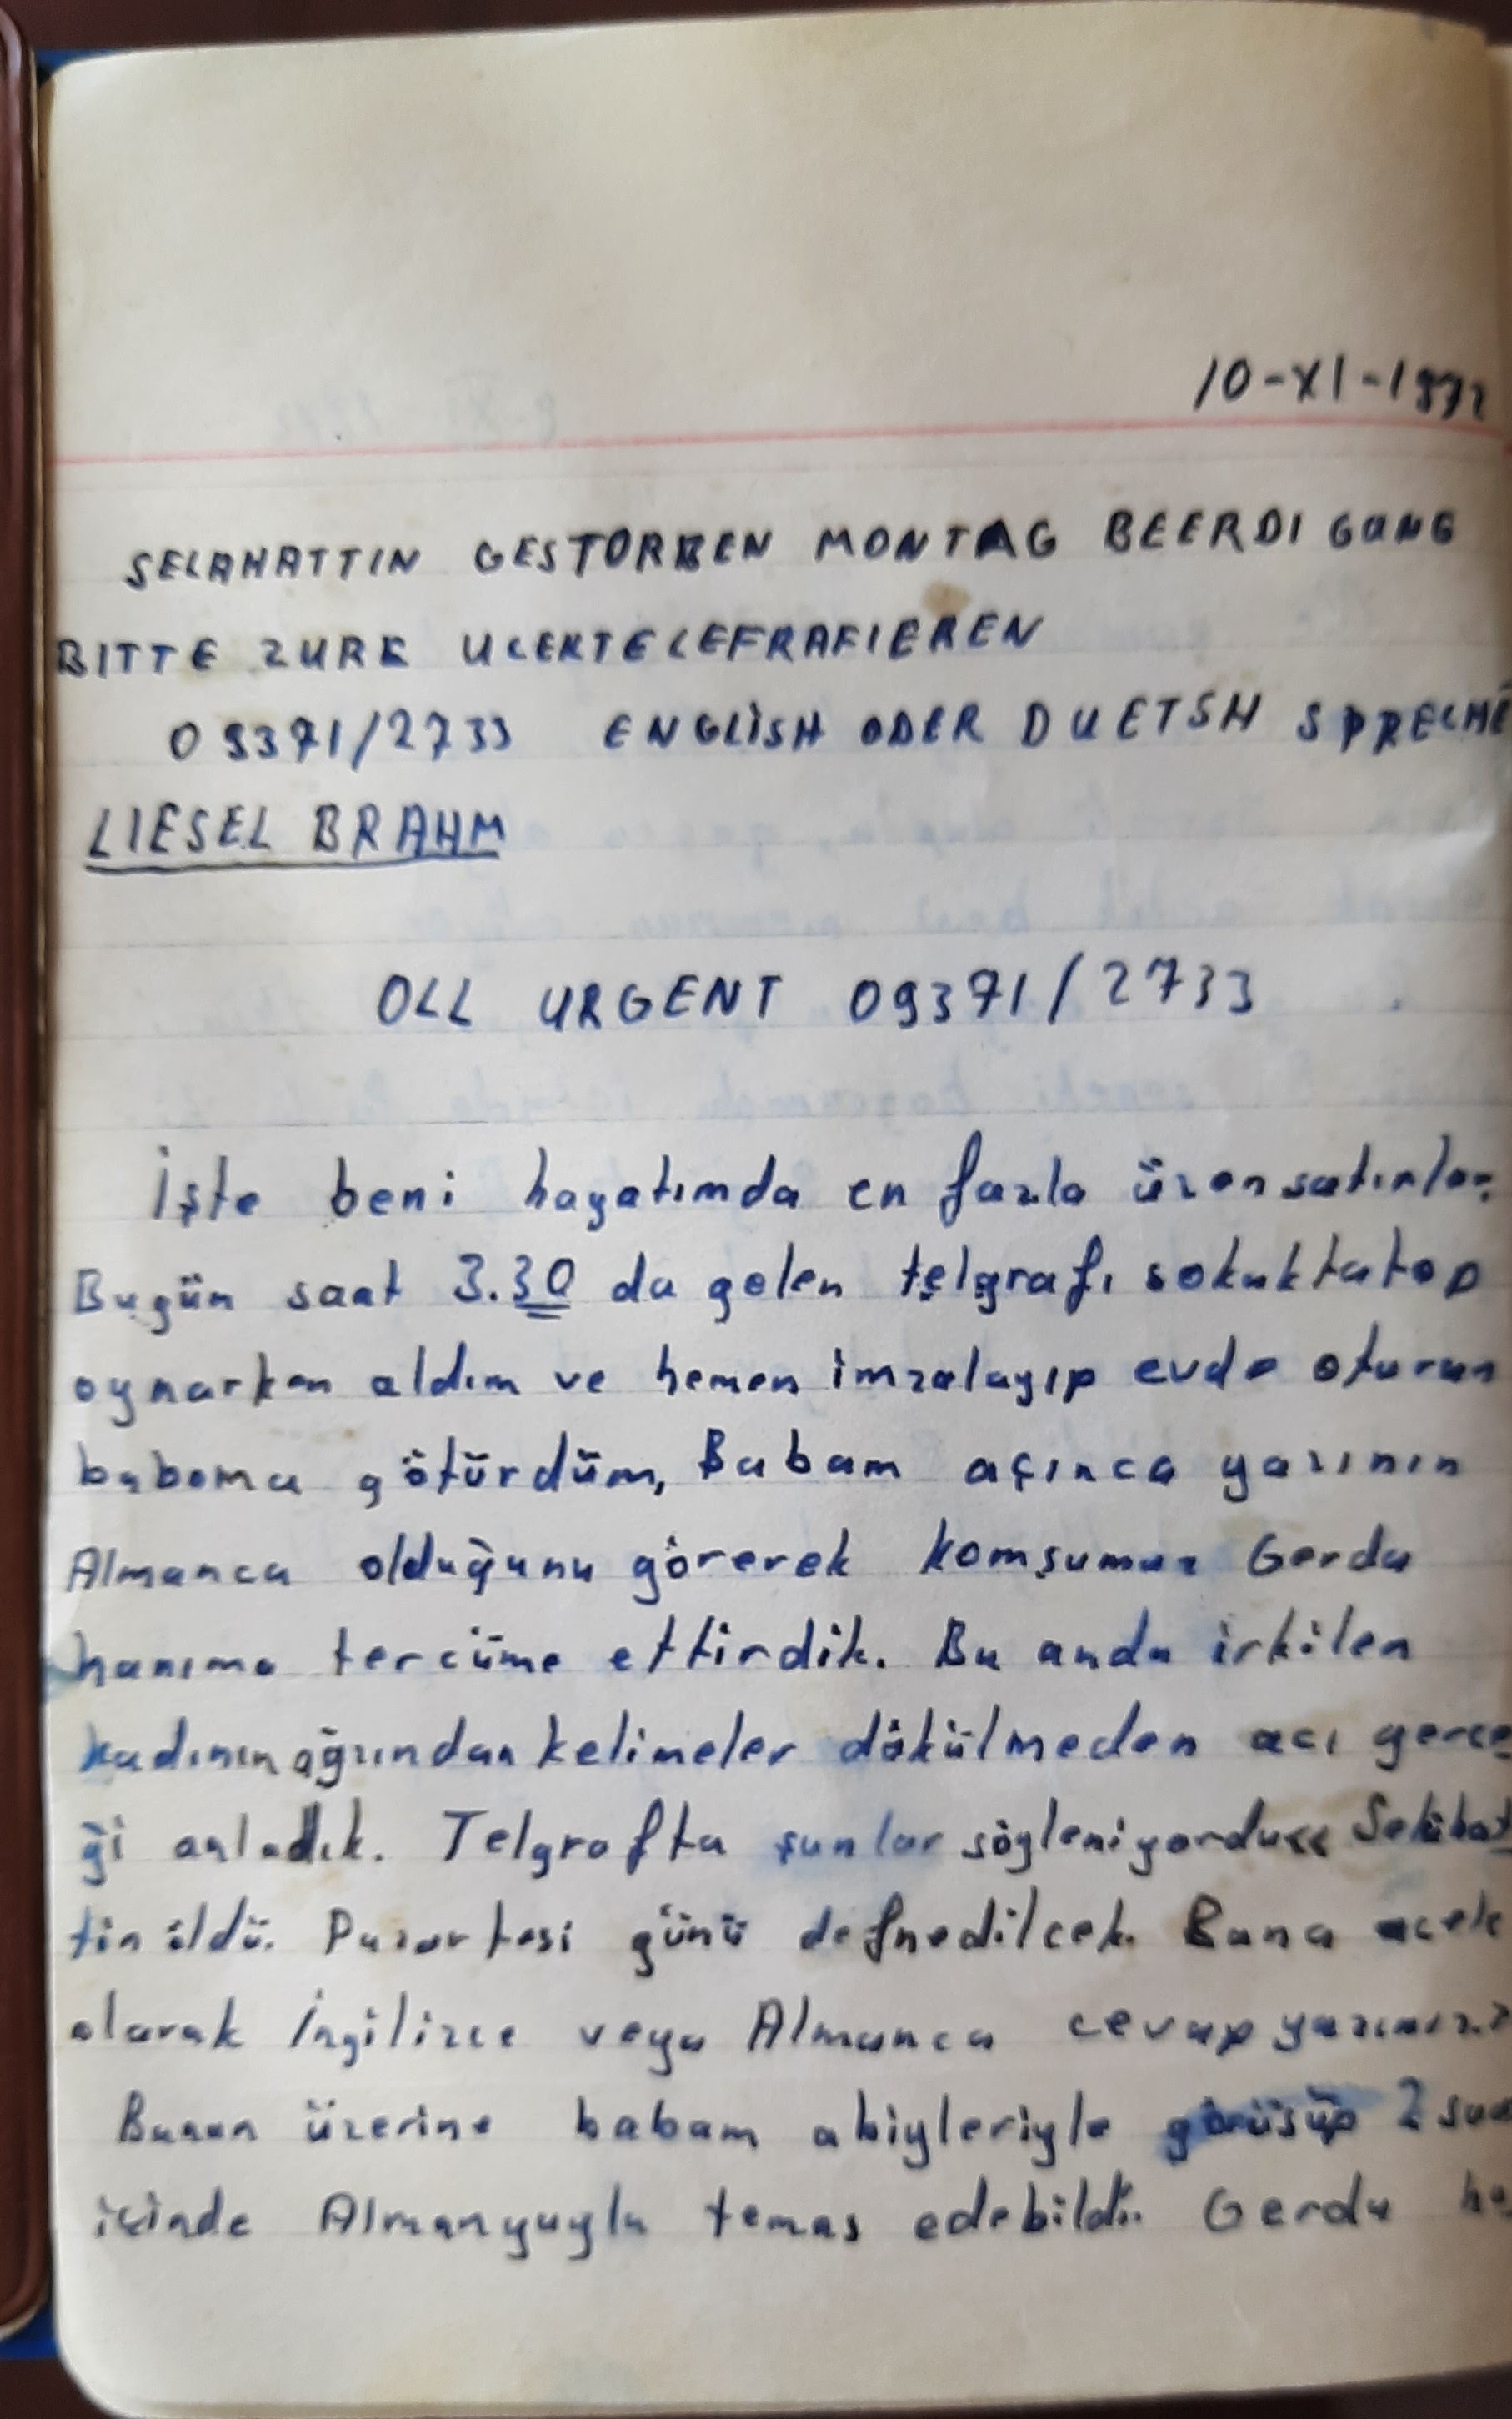 10-XI-1972
SELAHATTIN GESTORBEN MONTAG BEERDIGUNG
BITTE ZURK UCEKTELEFRAFIEREN
09371/2733 ENGLİSH ODER DUETSH SPRECHE
LIESEL BRAHM
OLL URGENT 09371/2733
İşte beni hayatımda en fazla üzen satırlar.
Bugün saat 3.30 da gelen telgrafı sokakta top
oynarken aldım ve hemen imzalayıp evde oturan
babama götürdüm, Babam açınca yazının
Almanca olduğunu görerek komşumuz Gerda
hanıma tercüme ettirdik. Bu anda irkilen
kadının ağzından kelimeler dökülmeden acı gerçe
ği anladık. Telgrafta şunlar söyleniyordu << Selâhat
tin öldü. Pazartesi günü defnedilcek. Bana acele
olarak İngilizce veya Almanca cevap yazınız.>
Bunun üzerine babam abiyleriyle görüşüp 2 saa
içinde Almanyayla temas edebildi. Gerda ha